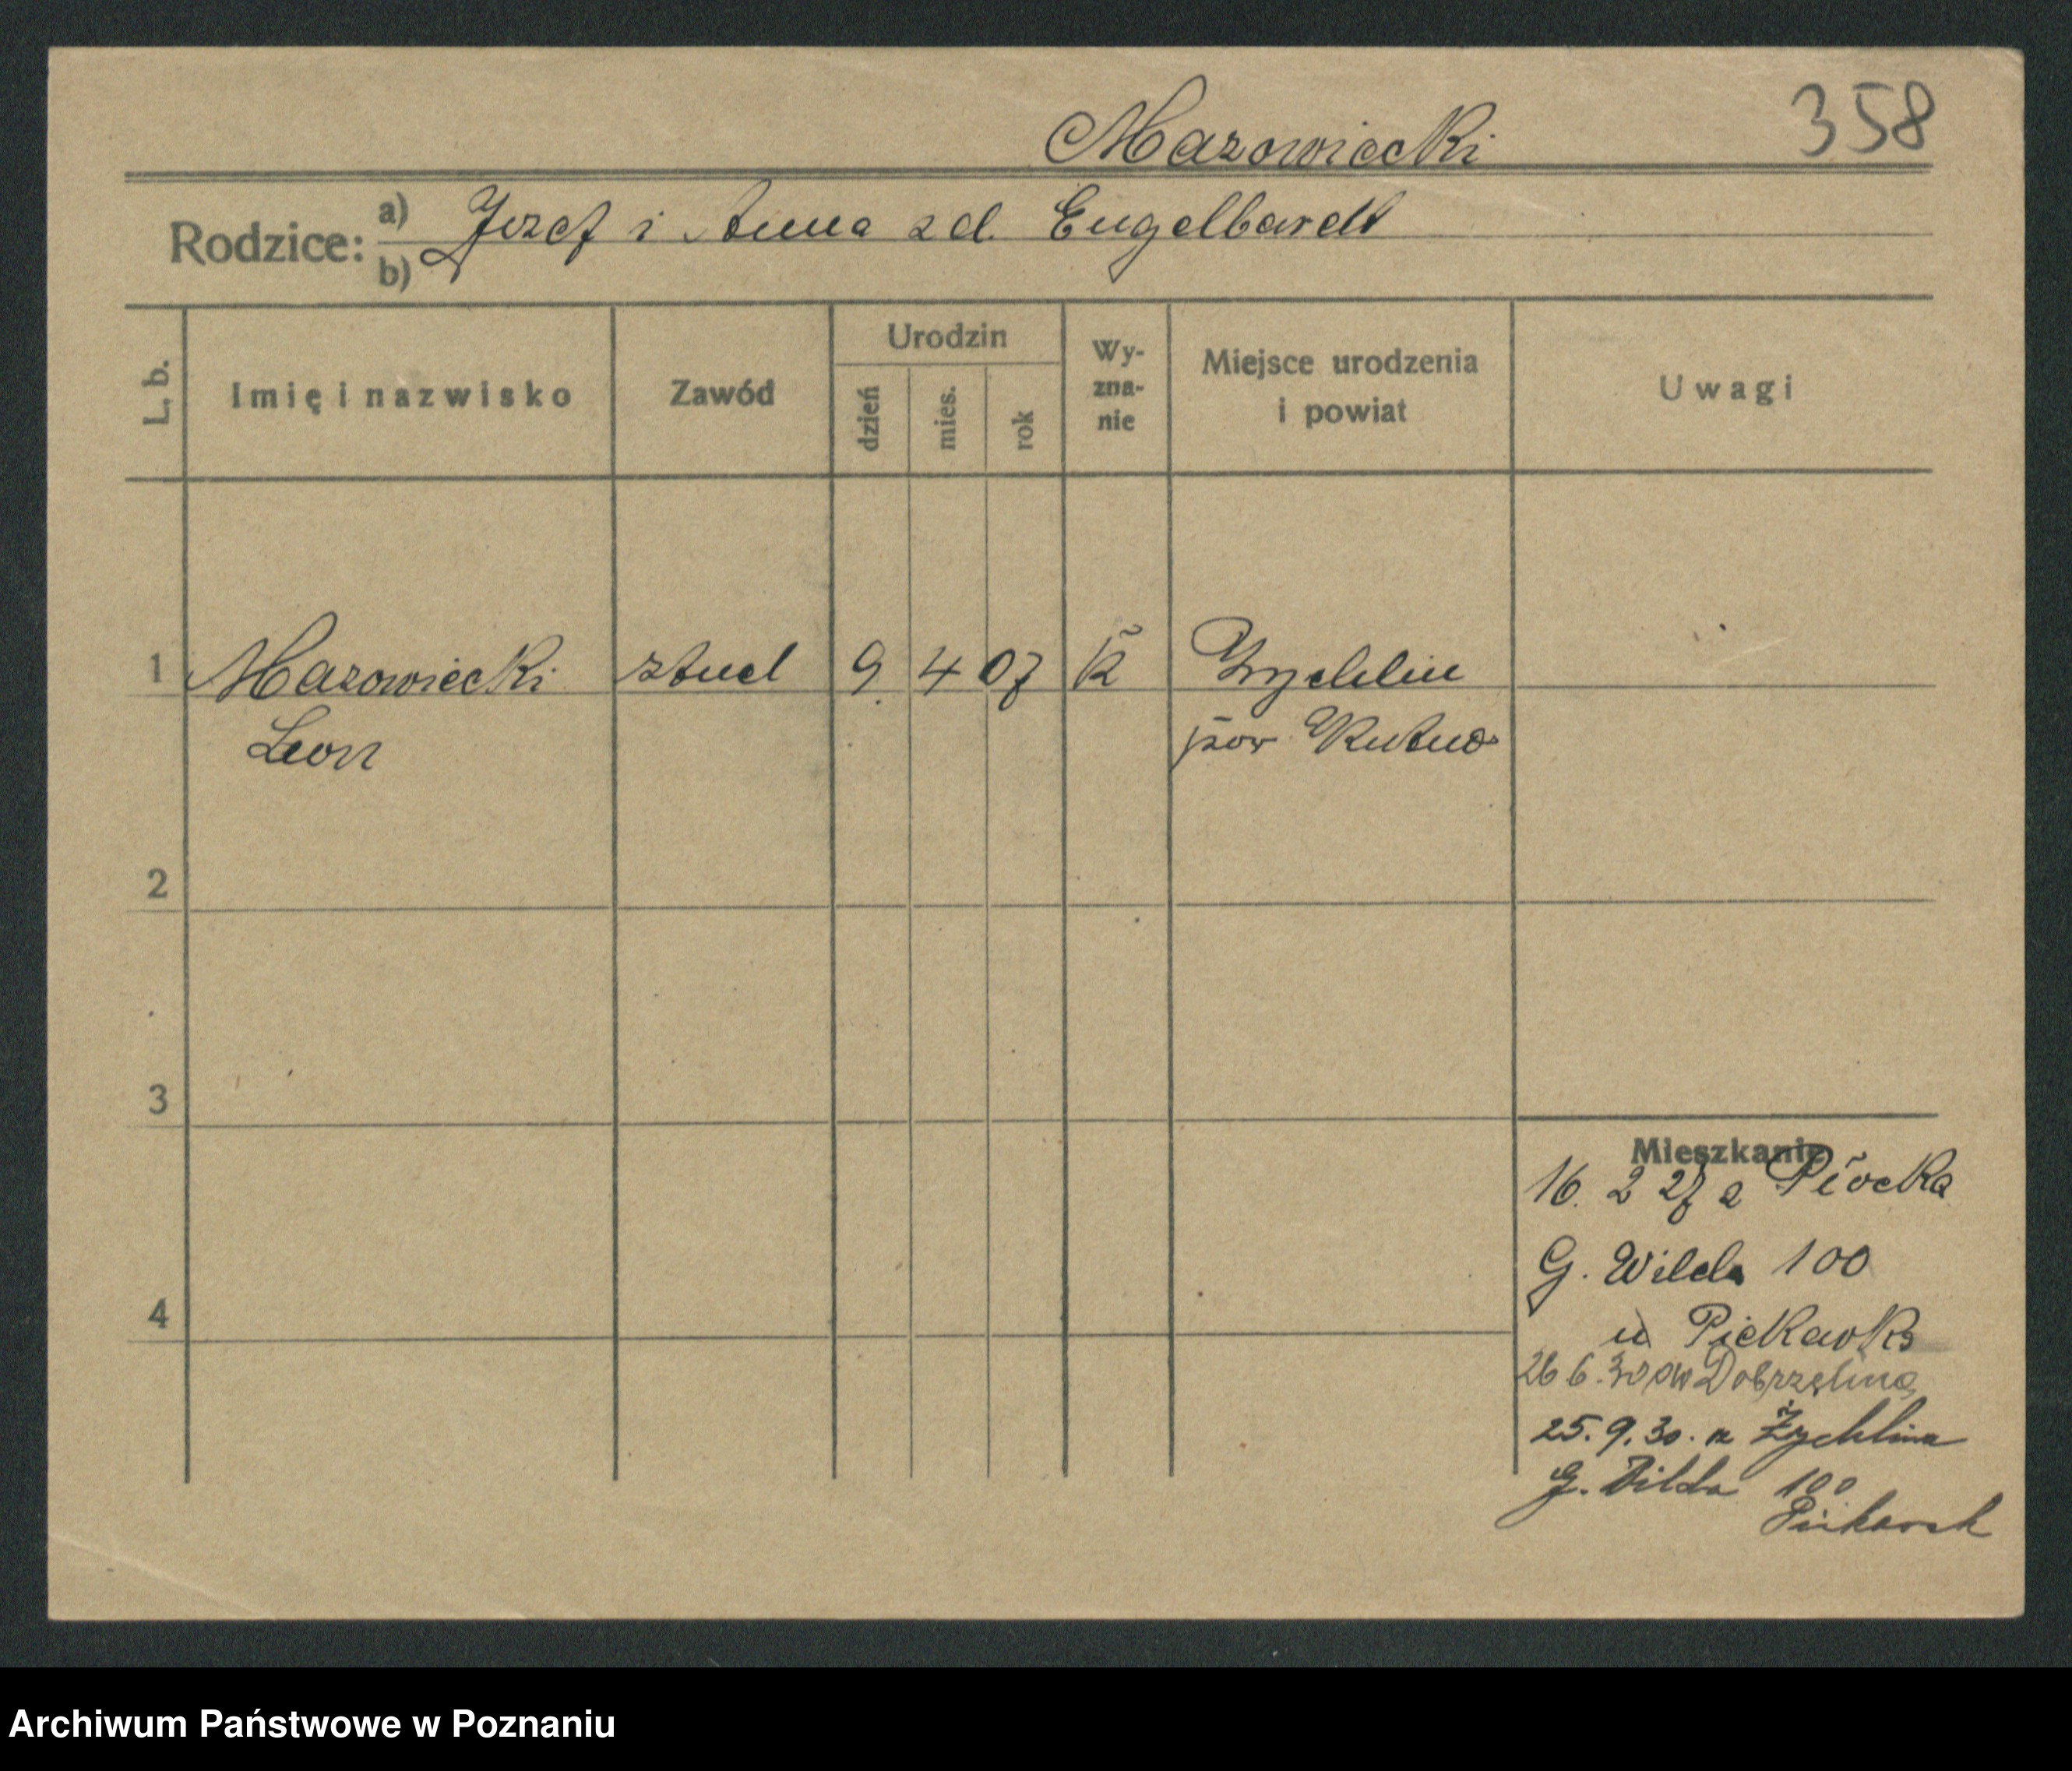 Mazowiecki 358
Rodzice: a) Jozef i Anna zd. Engelhardt
b)
L. b. Imię i nazwisko Zawód Urodzin dzień mies. rok Wy-zna-nie Miejsce urodzenia i powiat Uwagi
1 Mazowiecki stud 9. 4 07 K Zychlin
Leon pow Kutno
2
3
Mieszkanie
16. 2 27 z Płocka
G. Wilda 100
4
u Piekarsk
26 6.30 ow Dobrzelina
25.9.30. z Żychlina
G. Wilda 100
Piekarsk
Archiwum Państwowe w Poznaniu